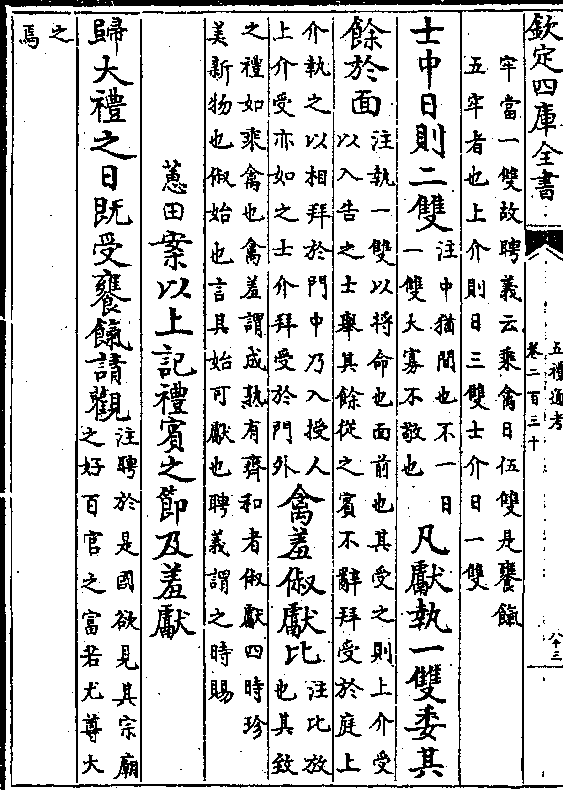 欽定四庫全書
五禮通考
卷二百三十
八十三
牢當一雙故聘義云乘禽日伍雙是饔餼
五牢者也上介則日三雙士介日一雙
士中日則二雙
注中猶間也不一日
一雙大寡不敬也
凡獻執一雙委其
餘於面
注執一雙以將命也面前也其受之則上介受
以入告之士舉其餘從之賓不辭拜受於庭上
介執之以相拜於門中乃入授人
上介受亦如之士介拜受於門外
禽羞俶獻比
注比放
也其致
之禮如乘禽也禽羞謂成熟有齊和者俶獻四時珍
美新物也俶始也言其始可獻也聘義謂之時賜
蕙田案以上記禮賓之節及羞獻
歸大禮之日既受饔餼請觀
注聘於是國欲見其宗廟
之好百官之富若尤尊大
之
焉